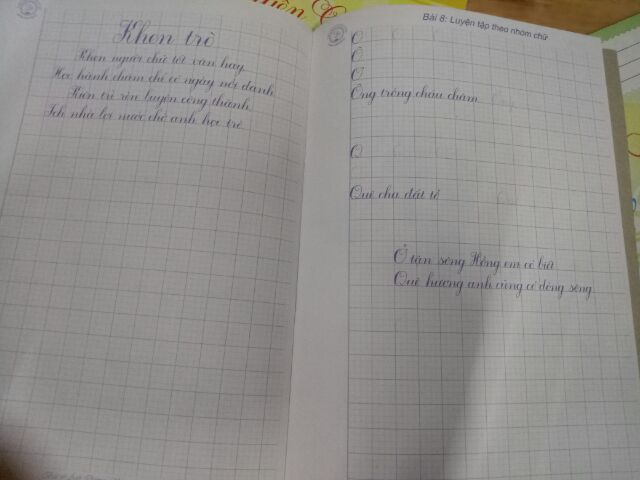 Khen trò
Khen người chữ tốt văn hay
Học hành chăm chỉ có ngày nổi danh
Kiên trì rèn luyện công thành
Ích nhà lợi nước chờ anh học trò
Bài 8: Luyện tập theo nhóm chữ
O
Ô
Ơ
Ông trồng cháu chăm
Q
Quê cha đất tổ
Ở tận sông Hồng em có biết
Quê hương anh cũng có dòng sông